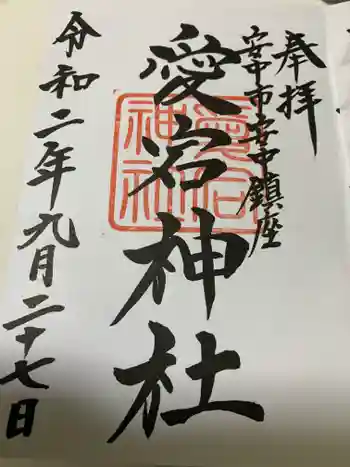 奉拝
安中市安中鎮座
愛宕神社
愛宕神社
令和二年九月二十七日